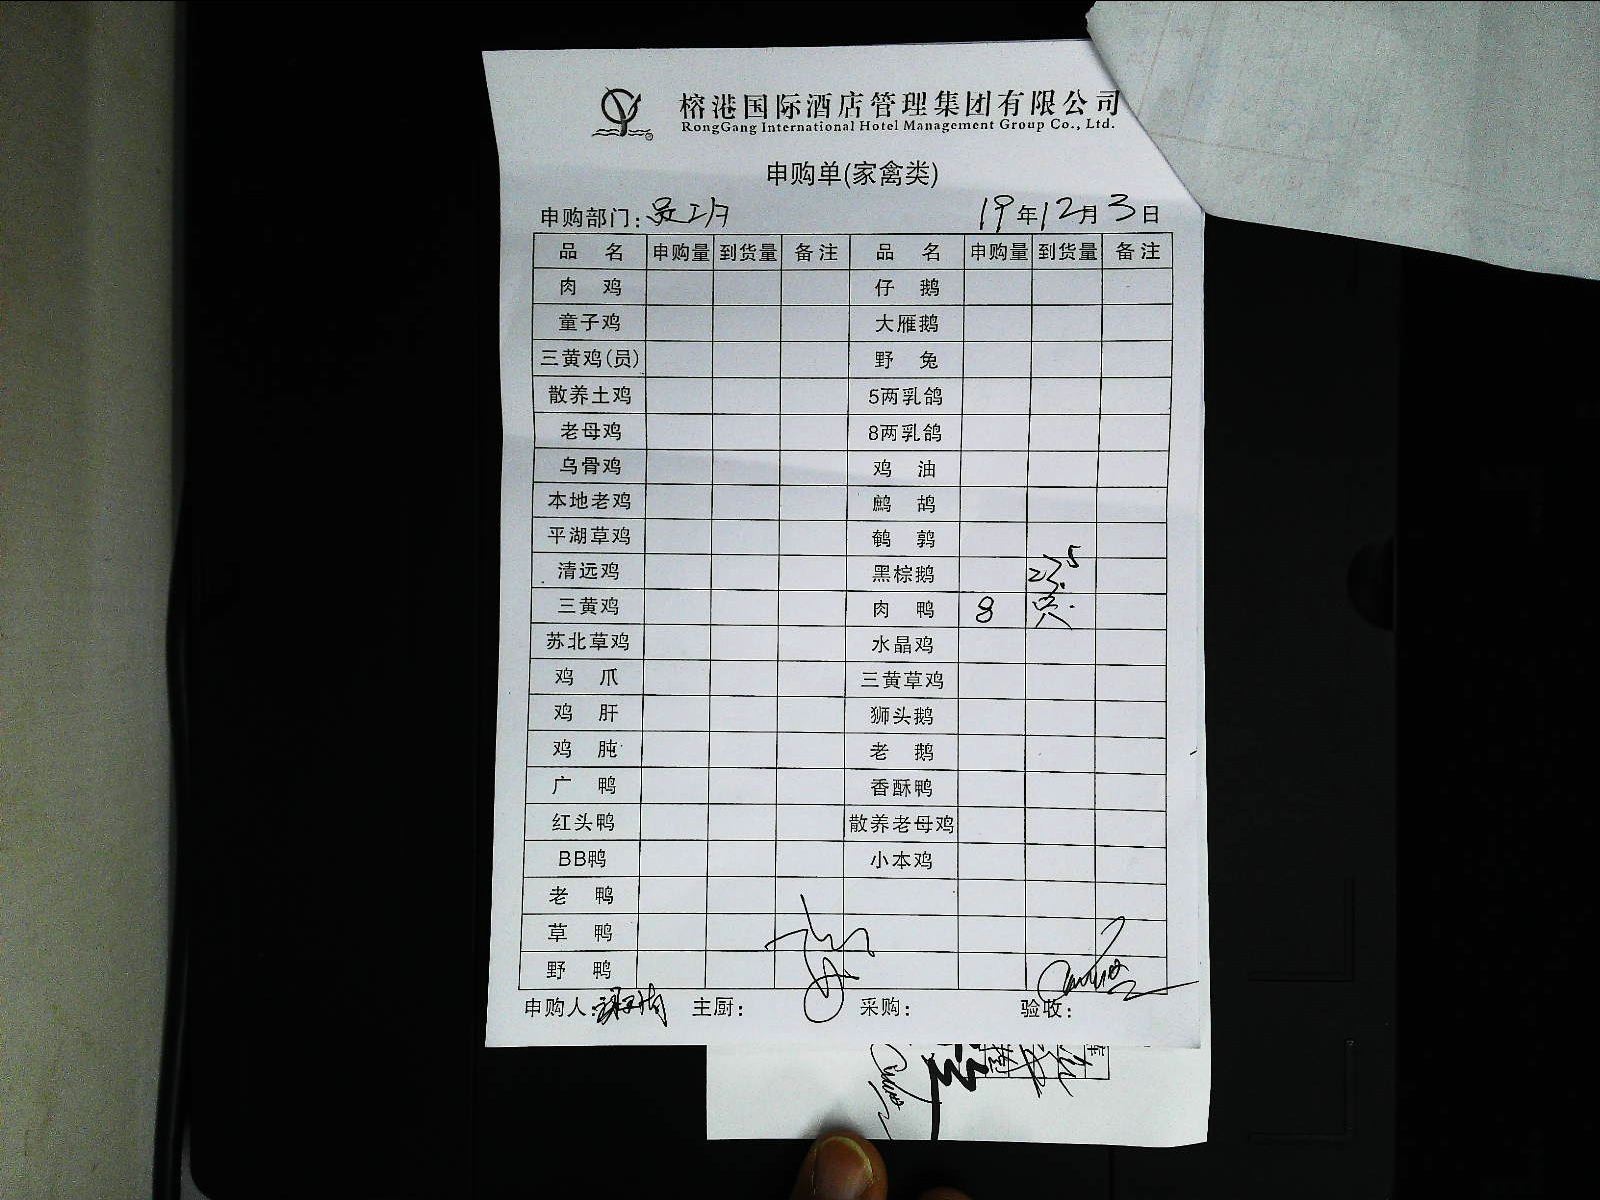 榕港国际酒店管理集团有限公司
RongGang International Hotel Management Group Co., Ltd.
申购单(家禽类)
申购部门: 19年12月3日
品名 申购量 到货量 备注 品名 申购量 到货量 备注
肉鸡 仔鹅
童子鸡 大雁鹅
三黄鸡(员) 野兔
散养土鸡 5两乳鸽
老母鸡 8两乳鸽
乌骨鸡 鸡油
本地老鸡 鹧鸪
平湖草鸡 鹌鹑
清远鸡 黑棕鹅 23.5
三黄鸡 肉鸭 8
苏北草鸡 水晶鸡
鸡爪 三黄草鸡
鸡肝 狮头鹅
鸡肫 老鹅
广鸭 香酥鸭
红头鸭 散养老母鸡
BB鸭 小本鸡
老鸭
草鸭
野鸭
申购人: 主厨: 采购: 验收: